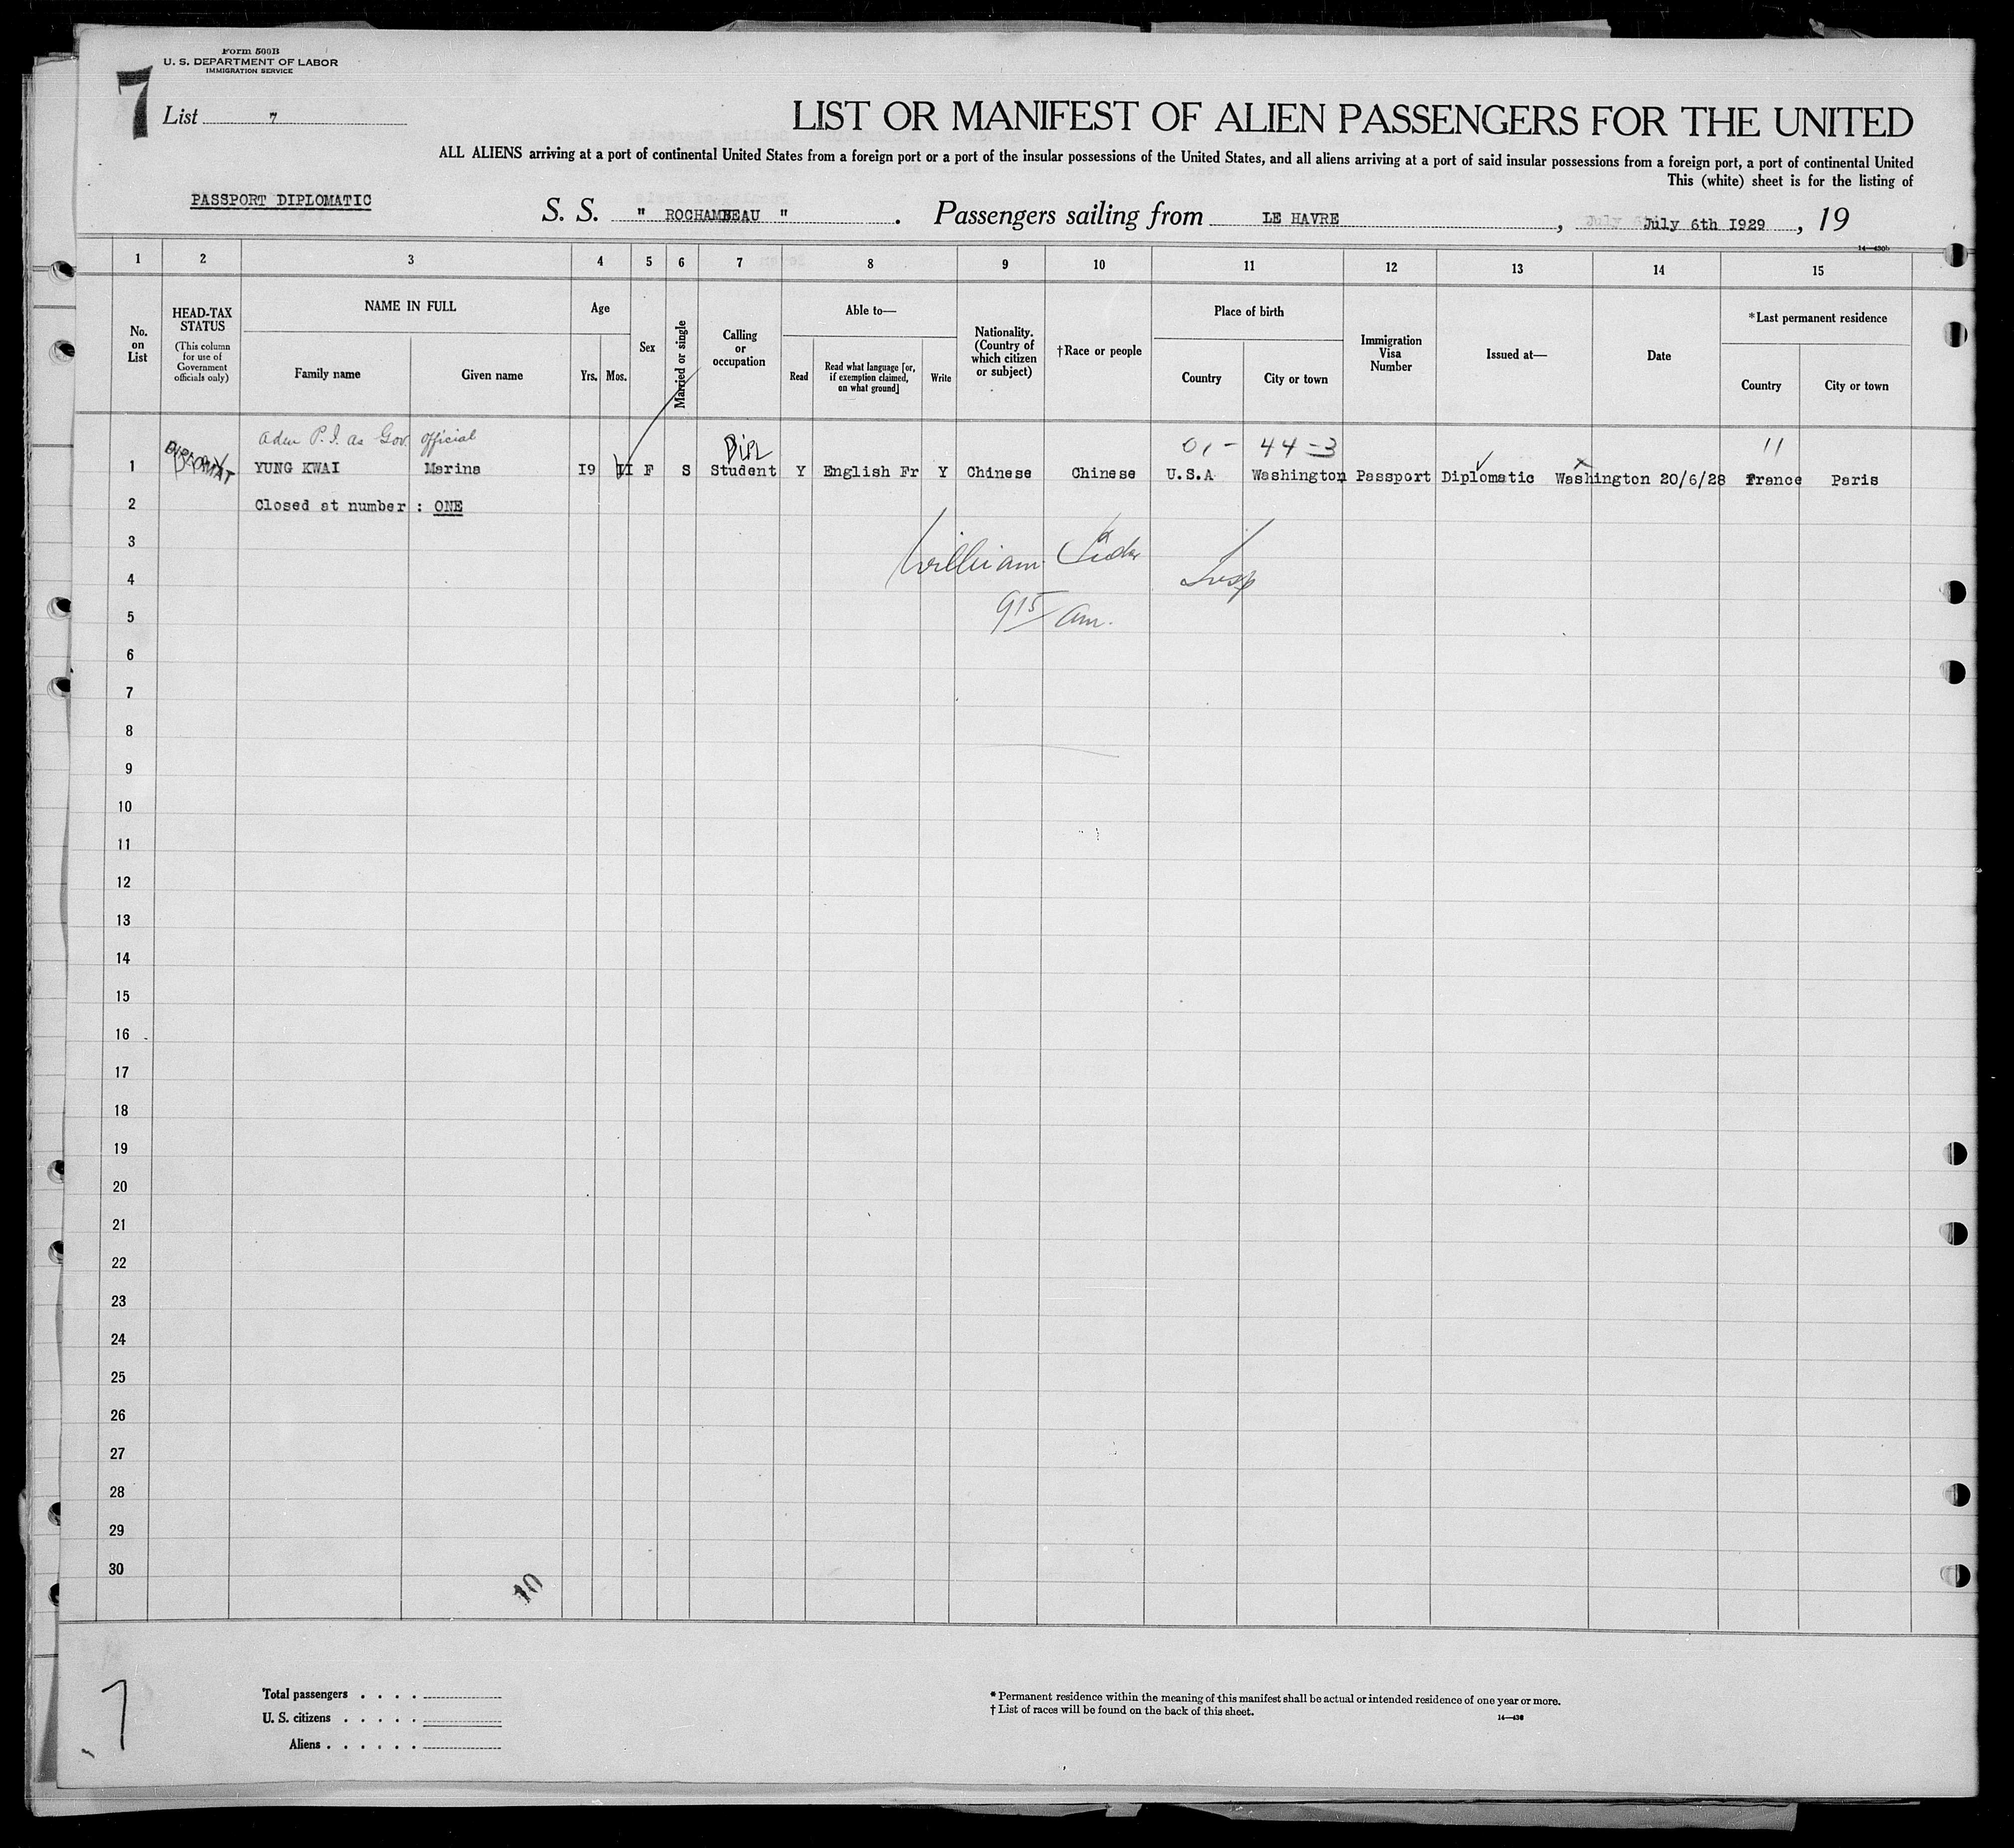 Form 500B
U. S. DEPARTMENT OF LABOR
IMMIGRATION SERVICE
7
List 7
LIST OR MANIFEST OF ALIEN PASSENGERS FOR THE UNITED
ALL ALIENS arriving at a port of continental United States from a foreign port or a port of the insular possessions of the United States, and all aliens arriving at a port of said insular possessions from a foreign port, a port of continental United
This (white) sheet is for the listing of
PASSPORT DIPLOMATIC
S. S. " ROCHAMBEAU " . Passengers sailing from LE HAVRE , July 6th I929 , 19
14—430b
1 2 3 4 5 6 7 8 9 10 11 12 13 14 15
No. on List
HEAD-TAX STATUS
(This column for use of Government officials only)
NAME IN FULL
Family name Given name
Age
Yrs. Mos.
Sex
Married or single
Calling or occupation
Able to—
Read
Read what language [or, if exemption claimed, on what ground]
Write
Nationality. (Country of which citizen or subject)
†Race or people
Place of birth
Country City or town
Immigration Visa Number
Issued at—
Date
*Last permanent residence
Country City or town
P. I. as Gov. official DIPL 01- 44-3 11
1 DIPLOMAT YUNG KWAI Marina I9 II F S Student Y English Fr Y Chinese Chinese U.S.A Washington Passport Diplomatic Washington 20/6/28 France Paris
2 Closed at number : ONE
3
William Insp
4
5
9 15/ am.
6
7
8
9
10
11
12
13
14
15
16
17
18
19
20
21
22
23
24
25
26
27
28
29
30
10
7
Total passengers . . . .
U. S. citizens . . . . .
Aliens . . . . . .
* Permanent residence within the meaning of this manifest shall be actual or intended residence of one year or more.
† List of races will be found on the back of this sheet.
14—430